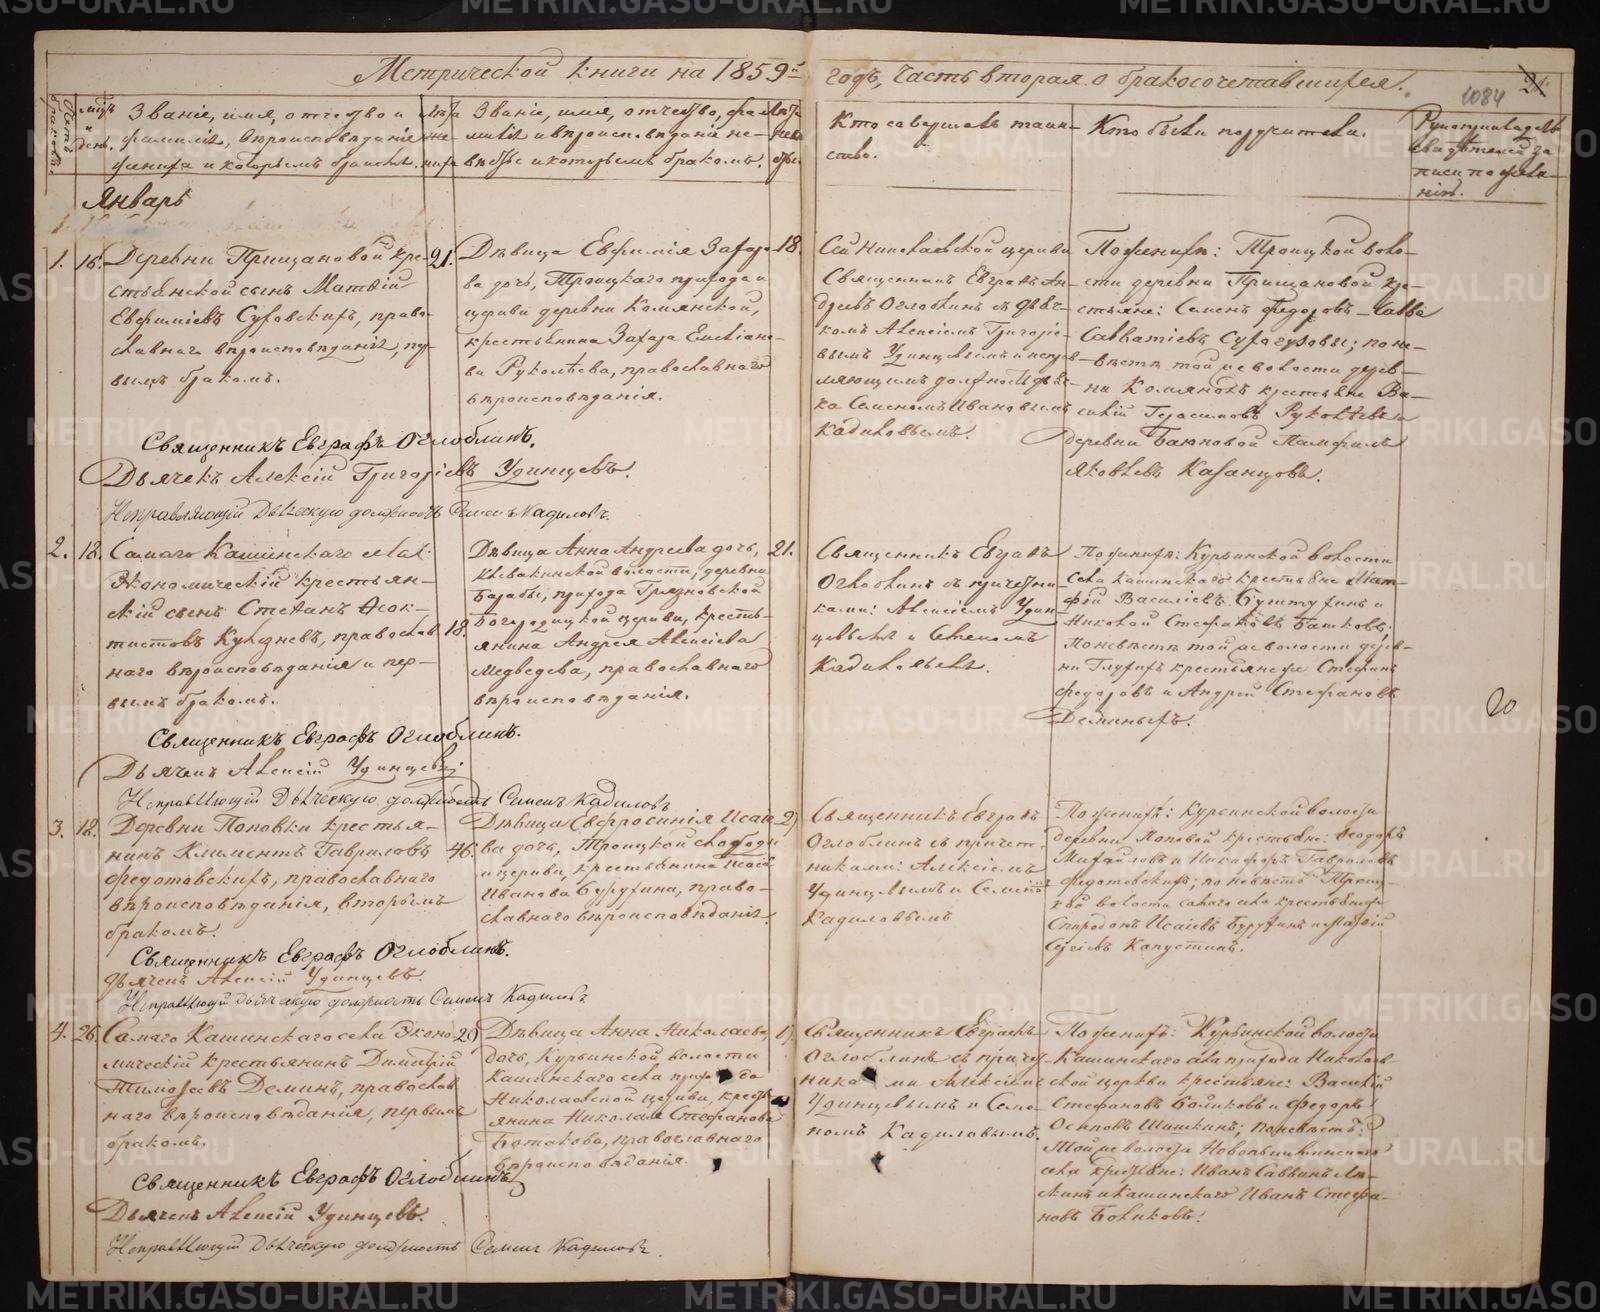 Метрической книги на 1859й годъ, часть вторая о бракосочетавшихся.
1084
Мцъ и день.
Званіе, имя, отчество и
фамилія, вѣроисповѣданіе
жениха и которымъ бракомъ.
Лѣта
жениха
Званіе, имя, отчество, фа-
милія и вѣроисповѣданіе не-
вѣсты и которымъ бракомъ.
Кто совершалъ таин-
ство.
Кто были поручители.
Рукоприкладство
свидѣтелей за-
писи по жела-
нію.
Январь
1.
16.
Деревни Прищановой кре-
стьянской сынъ Матѳій
Евфиміевъ Суховскихъ, право-
славнаго вѣроисповѣданія, пер-
вымъ бракомъ.
21.
Дѣвица Евфимія Захаро-
ва дочь, Троицкаго прихода и
церкви деревни Комянской,
крестьянина Захара Емеліано-
ва Рукомѣева, православнаго
вѣроисповѣданія.
18.
Сей Николаевской церкви
Священникъ Евграфъ Ан-
дреевъ Оглоблинъ съ дьяч-
комъ Алексіемъ Григоріе-
вымъ Удинцевымъ и исправ-
ляющимъ должность дьяч-
ка Семеномъ Ивановымъ
Кадиловымъ.
По женихѣ: Троицкой воло-
сти деревни Прищановой кре-
стьяне: Семенъ Федоровъ Савва
Савватіевъ Сухогузовы; по не-
вѣстѣ той же волости дерев-
ни Комянской крестьяне Ва-
силій Герасимовъ и
деревни Баюновой Памфилъ
Яковлевъ Казанцовъ.
Священникъ Евграфъ Оглоблинъ.
Дьячекъ Алексій Григоріевъ Удинцевъ.
Исправляющій Дьяческую должность Семенъ Кадиловъ.
2.
18.
Самаго Кашинскаго села
Экономическій крестьян-
скій сынъ Стефанъ Ѳеок-
тистовъ, православ-
наго вѣроисповѣданія и пер-
вымъ бракомъ.
18.
Дѣвица Анна Андреева дочь,
Клевакинской волости, деревни
Барабы, прихода Грязновской
Богородицкой церкви, кресть-
янина Андрея Алексіева
Медведева, православнаго
вѣроисповѣданія.
21.
Священникъ Евграфъ
Оглоблинъ съ причетни-
ками: Алексіемъ Удин-
цевымъ и Семеномъ
Кадиловымъ.
По женихѣ: Курьинской волости
села Кашинскаго крестьяне Мат-
фій Василіевъ и
Николай Стефановъ Башковъ;
По невѣстѣ той же волости дерев-
ни Глухихъ крестьяне Стефанъ
Федоровъ и Андрей Стефановъ
Деминыхъ.
20
Священникъ Евграфъ Оглоблинъ.
Дьячекъ Алексій Удинцевъ;
Исправляющій Дьяческую должность Семенъ Кадиловъ
3.
18.
Деревни Поповки крестья-
нинъ Климентъ Гавриловъ
Федотовскихъ, православнаго
вѣроисповѣданія, вторымъ
бракомъ.
46.
Дѣвица Евфросинія Исаіе-
ва дочь, Троицкой слободы
и церкви, крестьянина Исаіи
Иванова Бурухина, право-
славнаго вѣроисповѣданія.
Священникъ Евграфъ
Оглоблинъ съ причет-
никами: Алексіемъ
Удинцевымъ и Семеномъ
Кадиловымъ
По женихѣ: Курьинской волости
деревни Поповой крестьяне: Ѳеодоръ
Михайловъ и Никифоръ Гавриловъ
Федотовскихъ; по невѣстѣ Троиц-
кой волости самаго села крестьяне:
Спиридонъ Исаіевъ Бурухинъ и
Сергіевъ Капустинъ.
Священникъ Евграфъ Оглоблинъ.
Дьячекъ Алексій Удинцевъ.
Исправляющій дьяческую должность Семенъ Кадиловъ
4.
26.
Самаго Кашинскаго села Эконо-
мическій крестьянинъ Димитрій
Тимофеевъ Деминъ, православ-
наго вѣроисповѣданія, первымъ
бракомъ.
20
Дѣвица Анна Николаева
дочь, Курьинской волости
Кашинскаго села прихода
Николаевской церкви, кресть-
янина Николая Стефанова
Ботакова, православнаго
вѣроисповѣданія.
Священникъ Евграфъ
Оглоблинъ съ причет-
никами Алексіемъ
Удинцевымъ и Семе-
номъ Кадиловымъ.
По женихѣ: Курьинской волости
Кашинскаго села прихода Николаев-
ской церкви крестьяне: Василій
Стефановъ Боликовъ и Федоръ
Осиповъ Шишкинъ; по невѣстѣ:
Той же волости
села крестьяне: Иванъ Саввинъ Ля-
скинъ и Кашинскаго Иванъ Стефа-
новъ Боликовъ.
Священникъ Евграфъ Оглоблинъ
Дьячекъ Алексій Удинцевъ.
Исправляющій Дьяческую должность Семенъ Кадиловъ.
METRIKI.GASO-URAL.RU